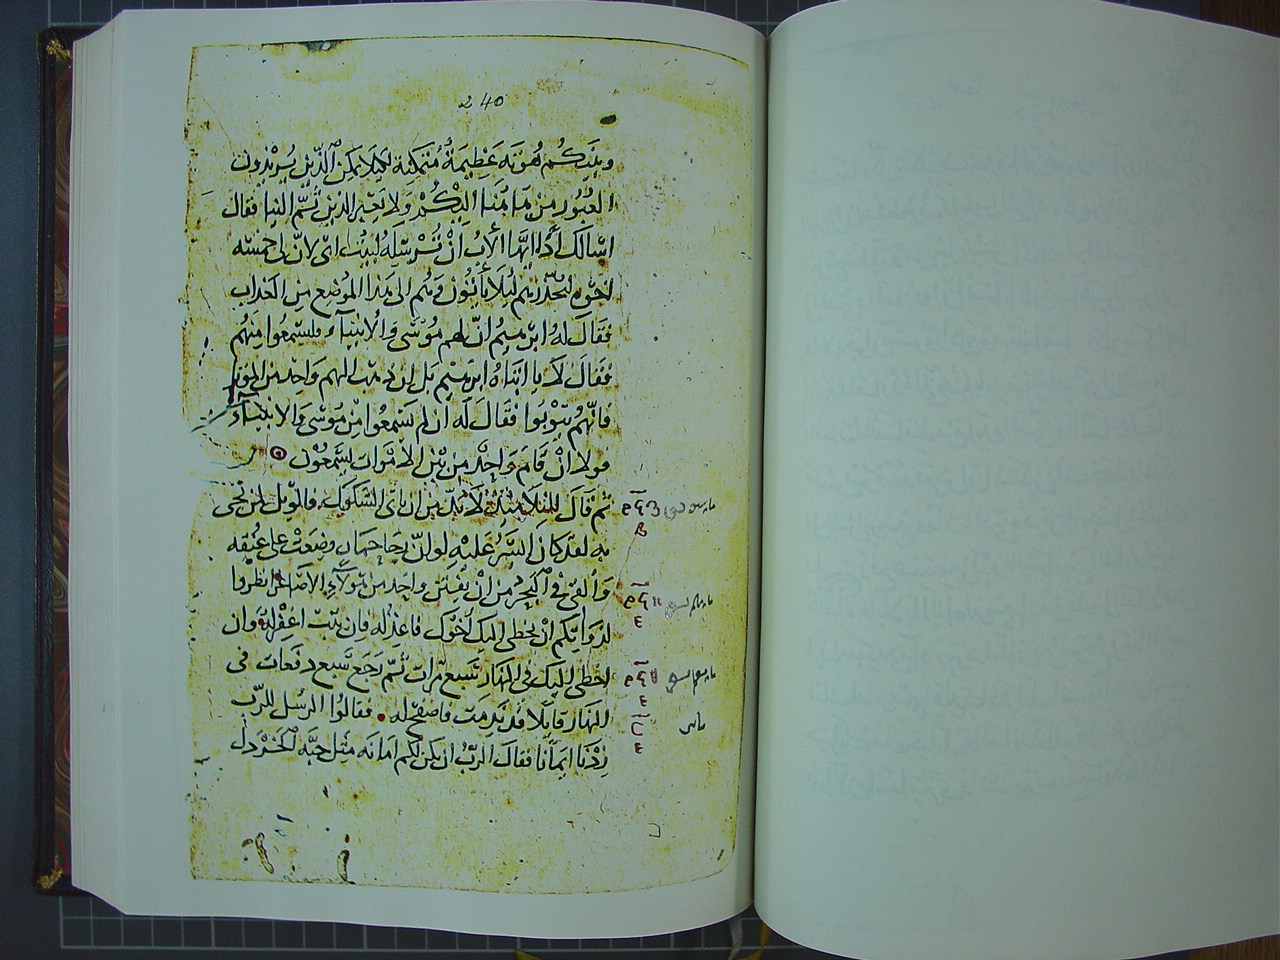 240
وبينكم هوته عظيمة متمكنة لكيلا يمكن الذين يريدون
العبور من هاهنا اليكم ولا يعبر الذين ثم الينا فقال
اسالك اذا ايها الاب ان ترسله لبيت ابى لان لى خمسه
اخوه ليحذرانهم ليلا ياتون وهم الى هذا الموضع من العذاب
فقال له ابرهيم ان لهم موسى والانبياء فليسمعوا منهم
فقال لا يا ابتاه ابرهيم بل ان ذهب اليهم واحد من الموتا
فانهم يتوبوا فقال له ان لم يسمعوا من موسى والانبياء
فولا ان قام واحد من بين الاموات يسمعون
ثم قال لتلامذته لا بد من ان تاتى الشكوك والويل لمن تجى
به لقد كان ايسر عليه لو ان رحا حمار وضعت على عنقه
والقى فى البحر من ان يفتن واحد من هولاء الاصاغر انظروا
لذواتكم ان يخطى اليك اخوك فاعذله فان تبت اغفر له وان
اخطى اليك فى النهار سبع مرات ثم رجع سبع دفعات فى
النهار قايلا قد ندمت فاصفح له فقالوا الرسل للرب
زدنا ايمانا فقال الرب ان يكن لكم امانه مثل حبه الخردل